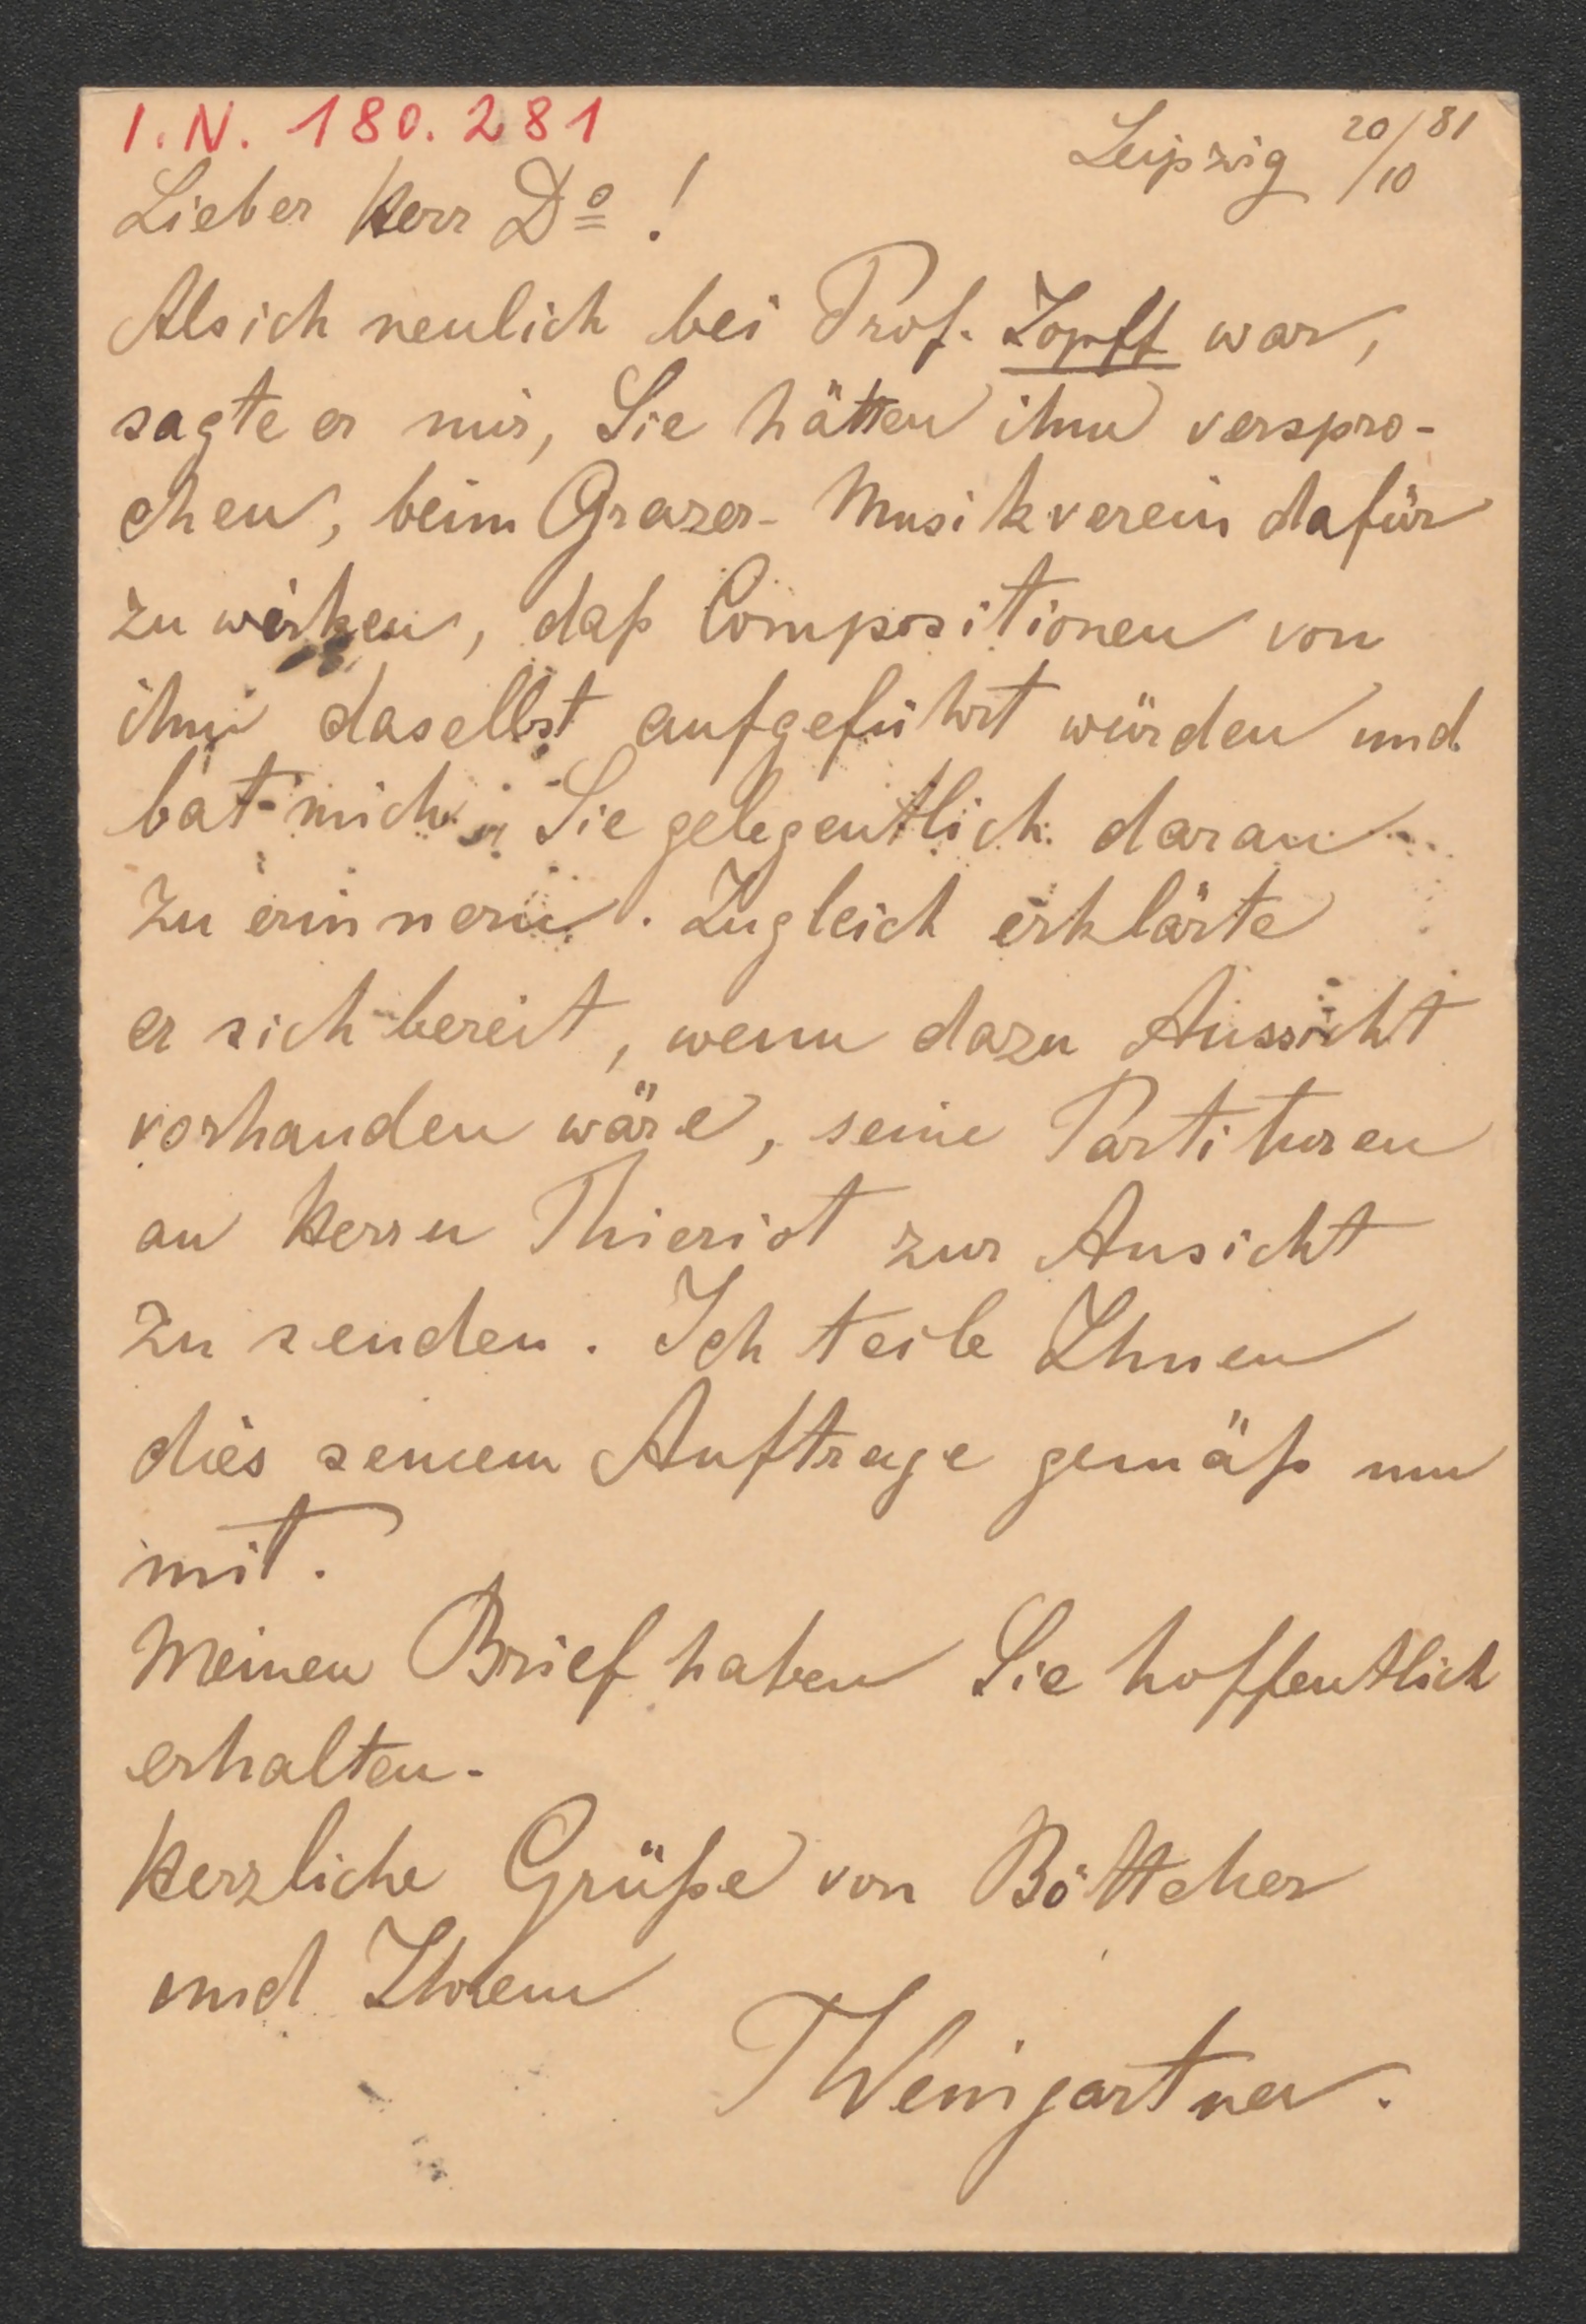 I.N. 180.281
Leipzig 20/10 81
Lieber Herr Do!
Als ich neulich bei Prof. Zopff war,
sagte er mir, Sie hätten ihm verspro-
chen, beim Grazer-Musikverein dafür
zu wirken, daß Compositionen von
ihm daselbst aufgeführt würden und
bat mich, Sie gelegentlich daran
zu erinnern. Zugleich erklärte
er sich bereit, wenn dazu Aussicht
vorhanden wäre, seine Partituren
an Herrn Thieriot zur Ansicht
zu senden. Ich teile Ihnen
dies seinem Auftrage gemäß nun
mit.
Meinen Brief haben Sie hoffentlich
erhalten.
Herzliche Grüße von Böttcher
und Ihrem
Weingartner.